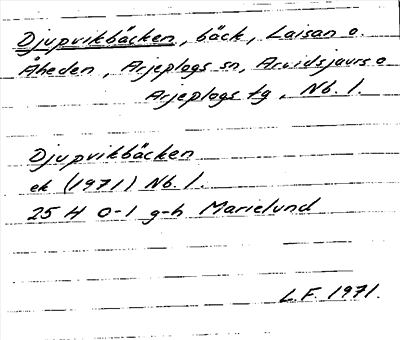 Djupvikbäcken, bäck, Laisan o.
Åheden, Arjeplogs sn, Arvidsjaurs o
Arjeplogs tg, Nb. l.
Djupvikbäcken
ek (1971) Nb. l.
25 H 0-1 g-h Marielund
L.F. 1971.